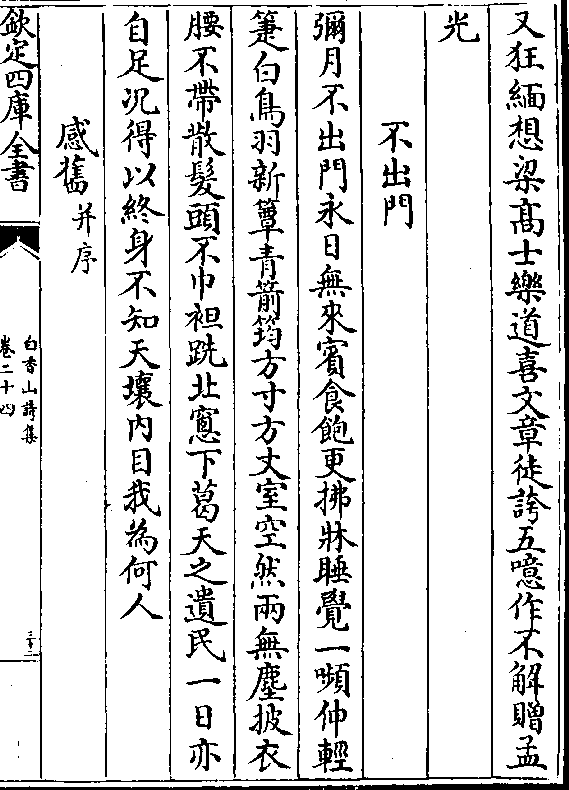 又狂緬想梁髙士樂道喜文章徒誇五噫作不解贈孟
光
不出門
彌月不出門永日無來賓食飽更拂牀睡覺一嚬伸輕
箑白鳥羽新簟青箭筠方寸方丈室空然兩無塵披衣
腰不帶散髮頭不巾袒跣北窻下葛天之遺民一日亦
自足况得以終身不知天壤内目我為何人
感舊并序
欽定四庫全書
白香山詩集
卷二十四
三十二